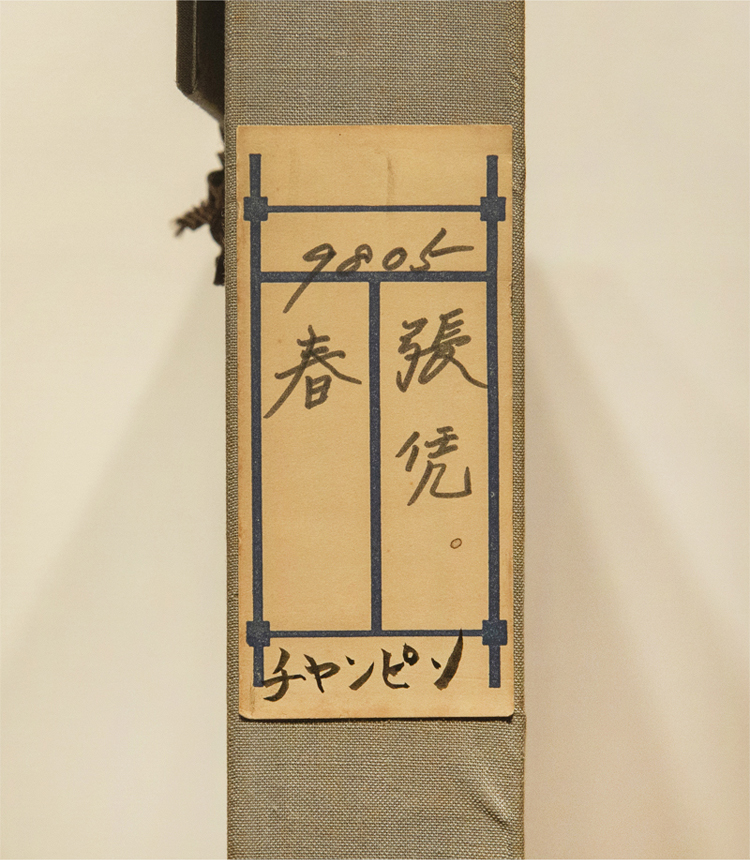 9805
張凭。
春
チャンピン